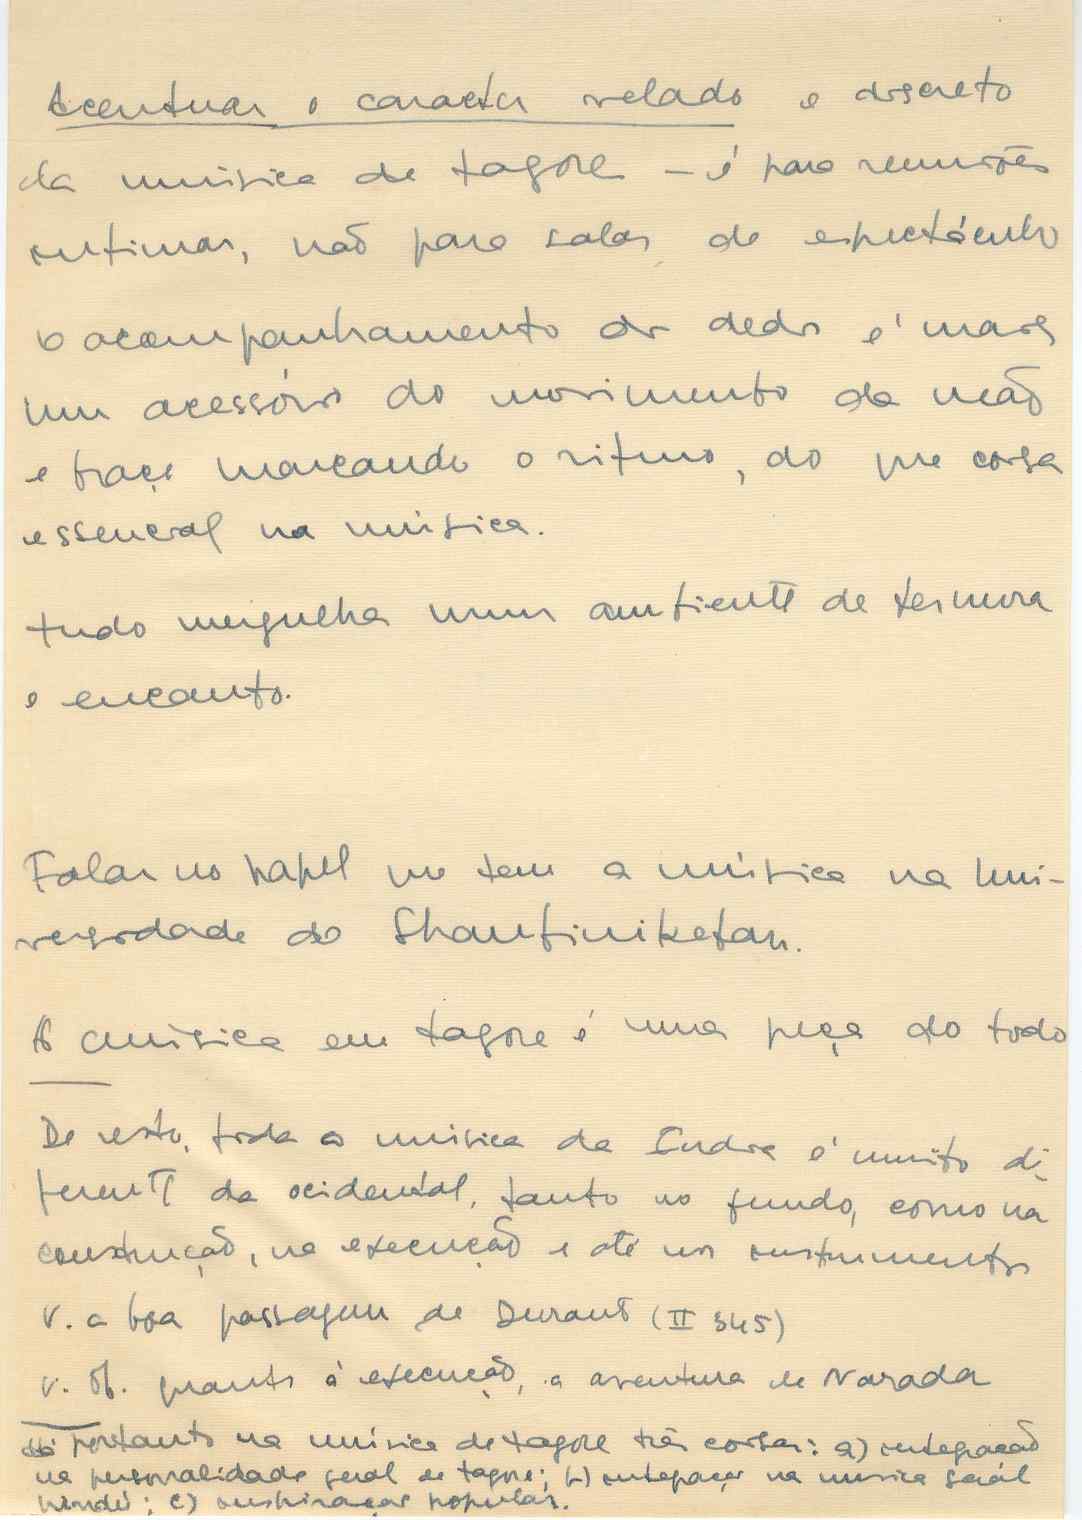 Acentuar o caracter velado e discreto
da musica de Tagore – é para reuniões
intimas, não para salas de espectáculo
o acompanhamento dos dedos é mais
um acessório do movimento da mão
e braço marcando o ritmo, do que coisa
essencial na música.
tudo mergulha num ambiente de ternura
e encanto.
Falar no papel que tem a música na Uni-
versidade de Shantiniketan.
A música em Tagore é uma peça do todo
De resto, toda a música da India é muito di-
ferente da ocidental, tanto no fundo, como na
construção, na execução e até nos instrumentos
V. a boa passagem de Durant (II 345)
V. ob. quanto à execução, a aventura de Narada
Há portanto na música de Tagore três coisas: a) integração
na personalidade geral de Tagore; b) integração na musica geral
hindú; c) inspiração popular.